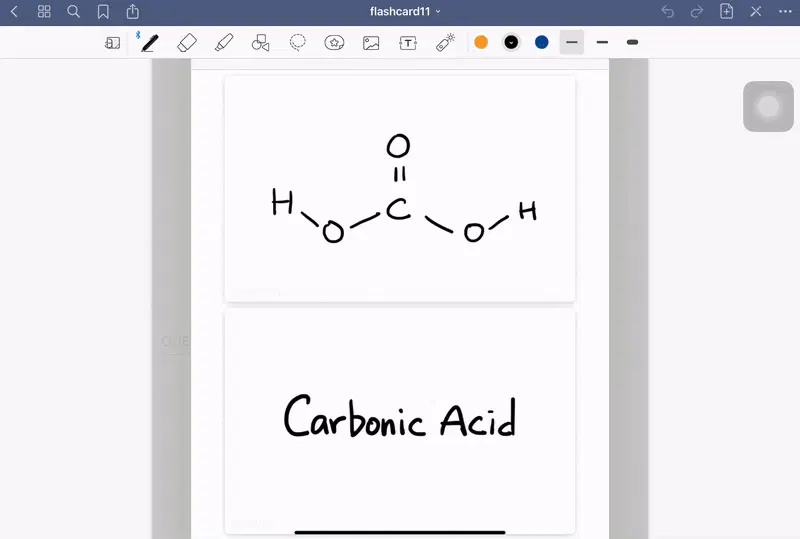 flashcard11
O
H
C
H
O
O
Carbonic Acid